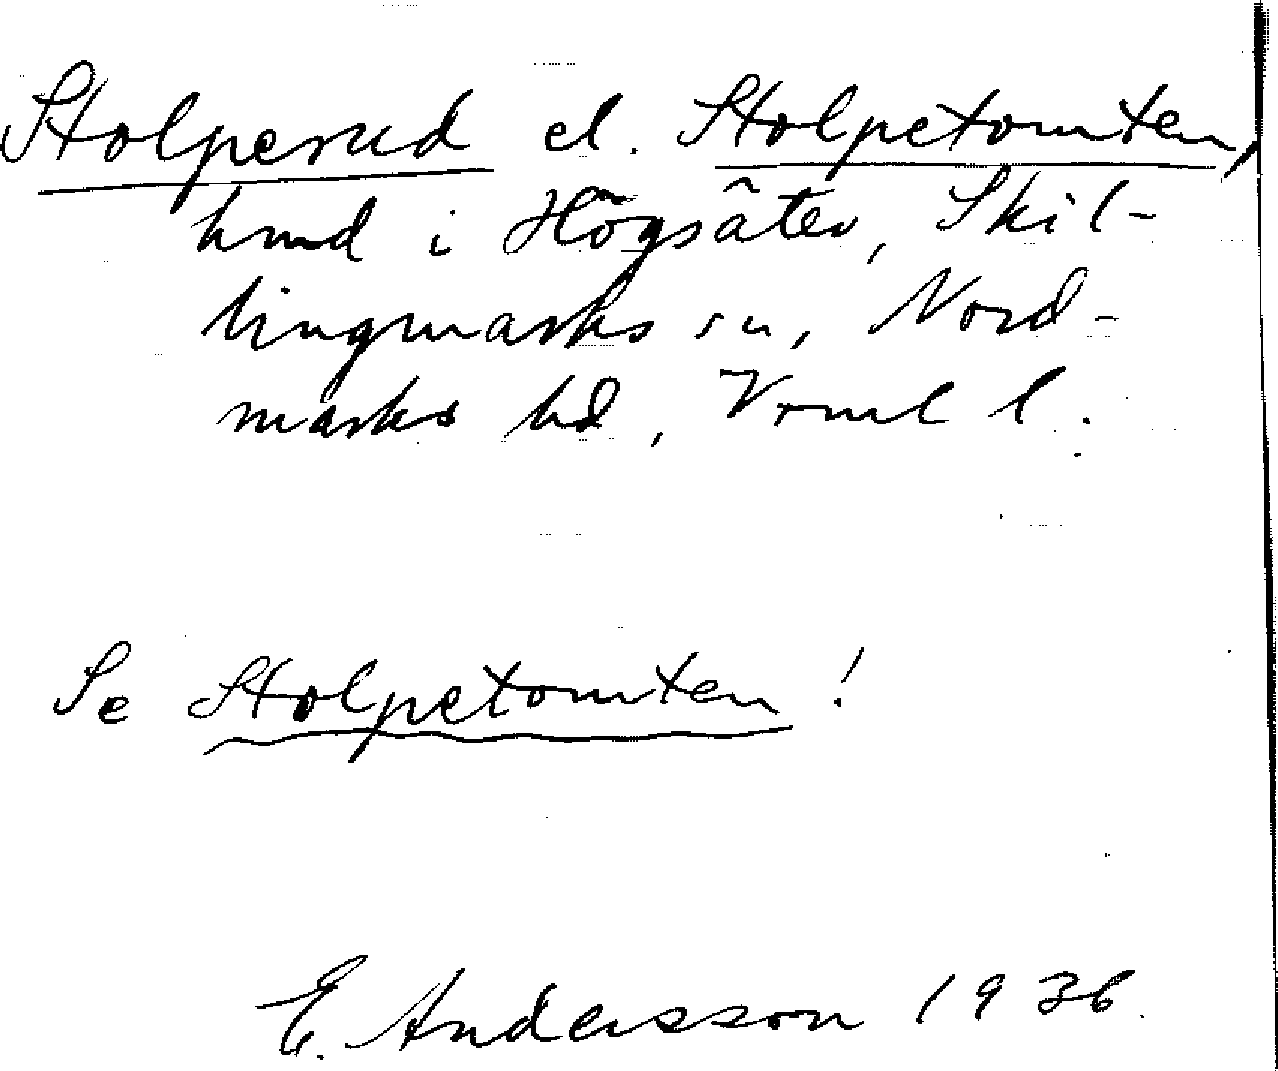 Stolperud el. Stolpetomten,
hmd i Högsäter, Skil-
lingmarks sn, Nord-
marks hd, Vrml l.
Se Stolpetomten!
E. Andersson 1936.